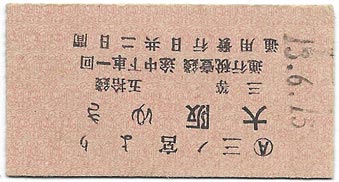 Ⓐ三ノ宮より
大阪ゆき
三等 五拾錢
通行税壹錢 途中下車一回
通用發行日共二日間
13.6.15